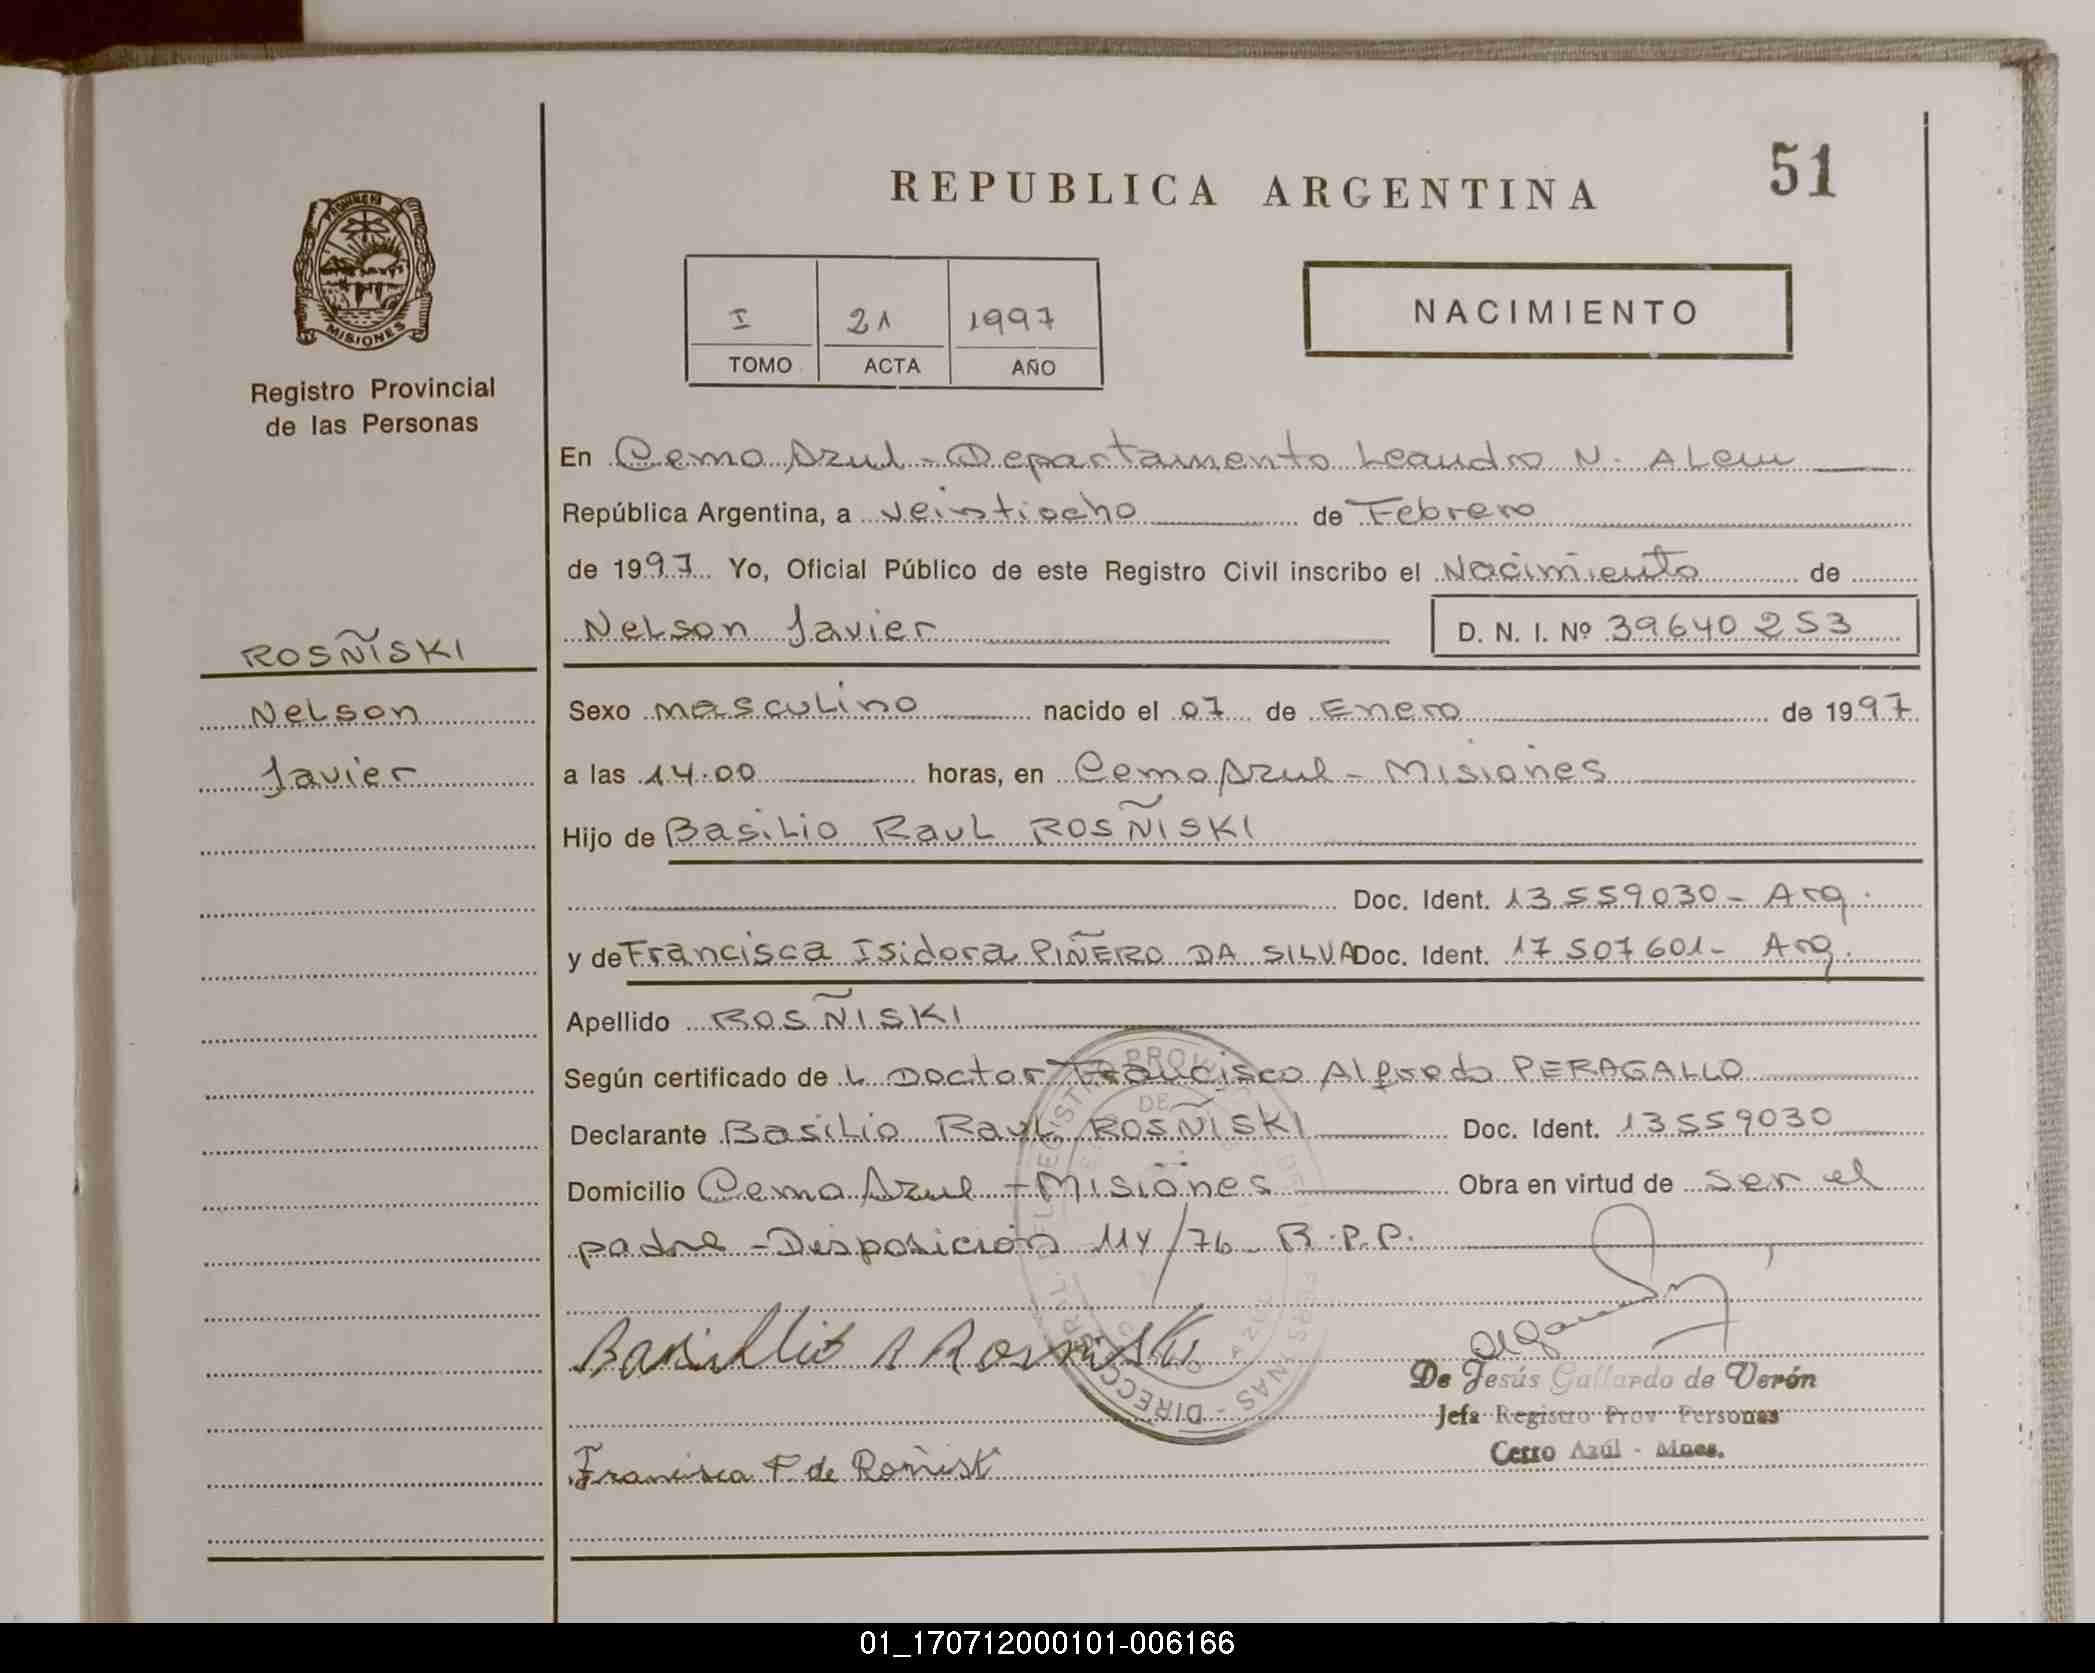 51
REPUBLICA ARGENTINA
PROVINCIA DE
MISIONES
Registro Provincial
de las Personas
I 21 1997
TOMO ACTA AÑO
NACIMIENTO
En Cerro Azul - Departamento Leandro N. Alem
República Argentina, a veintiocho de Febrero
de 1997 Yo, Oficial Público de este Registro Civil inscribo el Nacimiento de
Nelson Javier D. N. I. Nº 39640253
ROSÑISKI
Nelson
Javier
Sexo masculino nacido el 07 de Enero de 1997
a las 14.00 horas, en Cerro Azul - Misiones
Hijo de Basilio Raul ROSÑISKI
Doc. Ident. 13559030 - Arg.
y de Francisca Isidora PIÑERO DA SILVA Doc. Ident. 17507601 - Arg.
Apellido ROSÑISKI
Según certificado de L Doctor Francisco Alfredo PERAGALLO
Declarante Basilio Raul ROSÑISKI Doc. Ident. 13559030
Domicilio Cerro Azul - Misiones Obra en virtud de ser el
padre - Disposición 114/76 R.P.P.
Basillio R Rosniski
De Jesús Gallardo de Verón
Jefa Registro Prov Personas
Cerro Azúl - Mnes.
Francisca P de
01_170712000101-006166